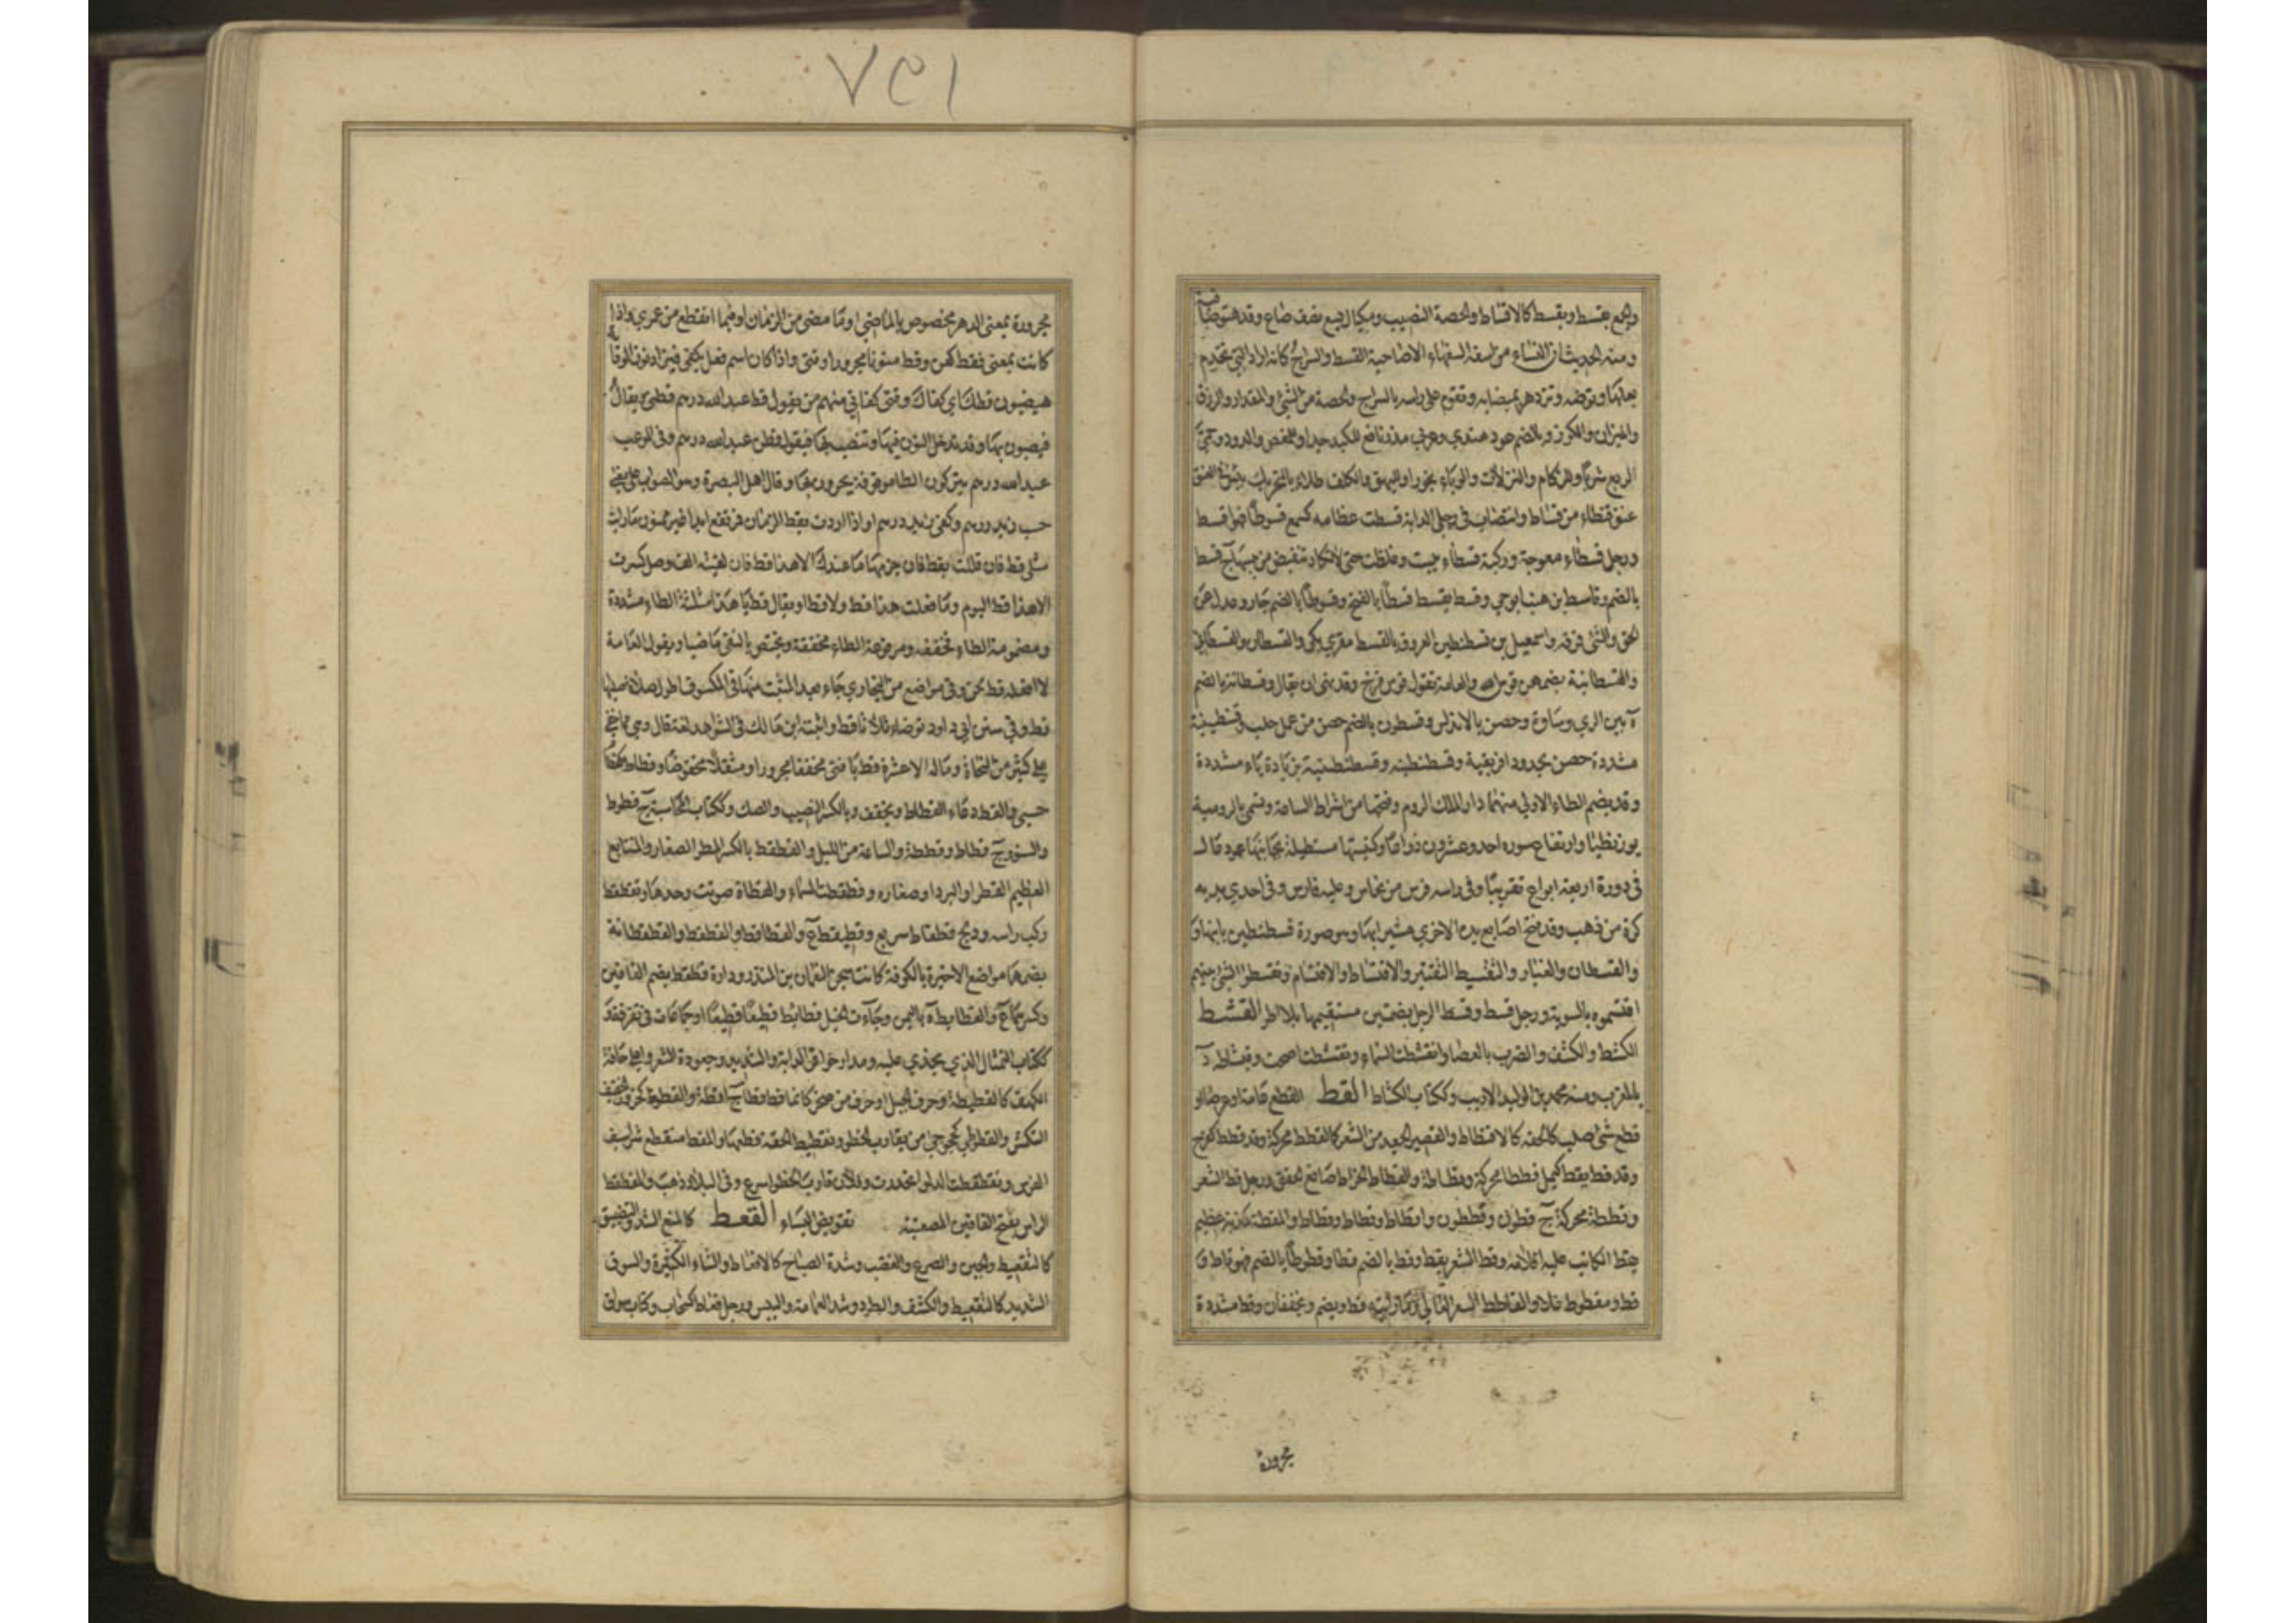 والجمع يقسط ويقسط كالاقساط والحصة النصيب ومكيال يسع نصف صاع وقد يتوضأ فيه
ومنه الحديث ان النساء من اسفه السفهاء الا صاحبة القسط والسراج كانه اراد التي تخدم
بعلها وتوضئه وتزدهر بميضاته وتقوم على راسه بالسراج والحصة من الشئ والمقدار والرزق
والميزان والكوز وبالضم عود هندي وعربي مدر نافع للكبد جدا وللمغص والدود وحمى
الربع شربا وللزكام والنزلات والوباء بخورا وللبهق والكلف طلاء وبالتحريك يبس في العنق
عنق قسطاء من قساط وانتصاب في رجلي الدابة قسطت عظامه كسمع قسوطا فهو اقسط
ورجل قسطاء معوجة وركبة قسطاء يبست وغلظت حتى لا تكاد تنقبض من يبسها ج قسط
بالضم وقاسط بن هنب ابو حي وقسط يقسط قسطا بالفتح وقسوطا بالضم جار وعدل عن
الحق والشئ فرقه واسمعيل بن قسطنطين المعروف بالقسط مقري مكي والقسطان والقسطاني
والقسطانية بضمهن قوس الله والعامة تقول قوس قزح وقد نهى ان يقال وقسطانة بالضم
ة بين الري وساوة وحصن بالاندلس وقسطون بالضم حصن من عمل حلب وقسنطينية
مشددة حصن بحدود افريقية وقسطنطينة وقسطنطينية بزيادة ياء مشددة
وقد يضم الطاء الاولى منهما دار الملك الروم وفتحها من اشراط الساعة وتسمى بالرومية
بوزنطيا وارتفاع سوره احد وعشرون ذراعا وكنيستها مستطيلة بجانبها عمود عال
في دورة اربعة ابواع تقريبا وفي راسه فرس من نحاس وعليه فارس وفي احدى يديه
كرة من ذهب وقد فتح اصابع يده الاخرى مشيرا بها وهو صورة قسطنطين بانيها و
والقسطان والغبار والتقسيط التقتير والاقتساط والاقتسام وتقسطوا الشئ بينهم
اقتسموه بالسوية ورجل قسط وقسط الرجل بضمتين مستقيمها بلا اطر القشط
الكشط والكشف والضرب بالعصا وانقشطت السماء وتقشطت اصحت وقشاط د
بالمغرب ومنه محمد بن الوليد الاديب وككتاب الكشاط القط القطع عامة او عرضا او
قطع شئ صلب كالحقة كالاقتطاط والقصير الجعد من الشعر كالقطط محركة وقد قطط كفرح
وقد قط يقط كيمل قططا محركة وقطاطة والقطاط الخراط صانع الحقق ورجل قط الشعر
وقططه محركة ج قطون وقططون واقطاط وقطاط وقطاط والمقطة كمذبة عظيم
يقط الكاتب عليه اقلامه وقط السعر يقط وقط بالضم قطا وقطوطا بالضم فهو قاط و
قط ومقطوط غلا والقاطط السعر الغالي وما رايته قط ويضم ويخففان وقط مشددة
مجرورة
١٥٧
مجرورة بمعنى الدهر مخصوص بالماضي اي فيما مضى من الزمان او فيما انقطع من عمري واذا
كانت بمعنى فقط كعن وقط منونا مجرورا وقتي واذا كان اسم فعل يكفي فتزاد نون الوقاية
فيضيون قطك اي كفاك وقتي كفاني منهم من يقول قط عبد الله درهم فطي يقال
فينصبون بها وقد تدخل النون فيها وتنصب بها فيقول قطن عبد الله درهم وفي الموعب
عبد الله درهم يتركون الطا موقوفة يجرون بها وقال اهل البصرة وهو الصواب على معنى
حسب زيد درهم وكفي زيد درهم او اذا اردت بقط الزمان فمرتفع ابدا غير منون ما رايت
مثله قط فان قللت بقط فاجزمها ما عندك الا هذا قط فان لقيته الف وصل كسرت
الا هذا قط اليوم وما فعلت هذا قط ولا قطا ويقال قط يا هذا مثلثة الطاء مشددة
ومضمومة الطاء مخففة ومرفوعة الطاء مخففة وتختص بالنفي ماضيا وتقول العامة
لا افعله قط لحن وفي مواضع من البخاري جاء بعد المثبت منها في الكسوف اطول صلاة صليتها
قط وفي سنن ابي داود توضا ثلاثا قط واثبته ابن مالك في الشواهد لغة قال وهي مما خفي
على كثير من النحاة وماله الا عشرة قط يا فتى مخففا مجزوما ومثقلا مخفوضا وقطاط كقطام
حسبي والقط دعاء القطاط ويخفف وبالكسر النصيب والصك وككتاب المحاسبة ج قطوط
والسنور ج قطاط وقططة والساعة من الليل والقطقط بالكسر المطر الصغار والمتتابع
العظيم القطر او البرد او صغاره وقطقطت السماء والقطاة صوتت وحدها وتقطقط
ركب راسه ودلج قطقاط سريع وقطيقط ع والقطاقط والقطقط والقطقطانة
بضمهما مواضع الاخيرة بالكوفة كانت سجن النعمان بن المنذر ودارة قطقط بضم القافين
وكسرهما ع والقطايط ة باليمن وجاءت الخيل قطائط قطيعا قطيعا او جماعات في تفرقة
ككتاب المثال الذي يحذى عليه ومدار حوافر الدابة والشديد وجعودة الشعر واعلى حافة
الكهف كالقطيطة وحرف الجبل او حرف من صخر كانما قط قطا ج اقطة والقطوط كحزور الخفيف
الكمش والقطوطى كخجوجى من يقارب الخطو وتقطيط الحقة قطعها والمقط منقطع شراسيف
الفرس وتقطقطت الدلو انحدرت وفلان قارب الخطو واسرع وفي البلاد ذهب والمقطقط
الراس بفتح القافين المصعنبة تقويض البناء القعط كالمنع الشد والتضييق
كالتقعيط والجبن والصرع والغضب وشدة الصياح كالاقعاط والشاء الكثيرة والسوق
الشديد كالتقعيط والكشف والطرد وشد العمامة واليبس ورجل قعاط كشداد وكتاب سواق